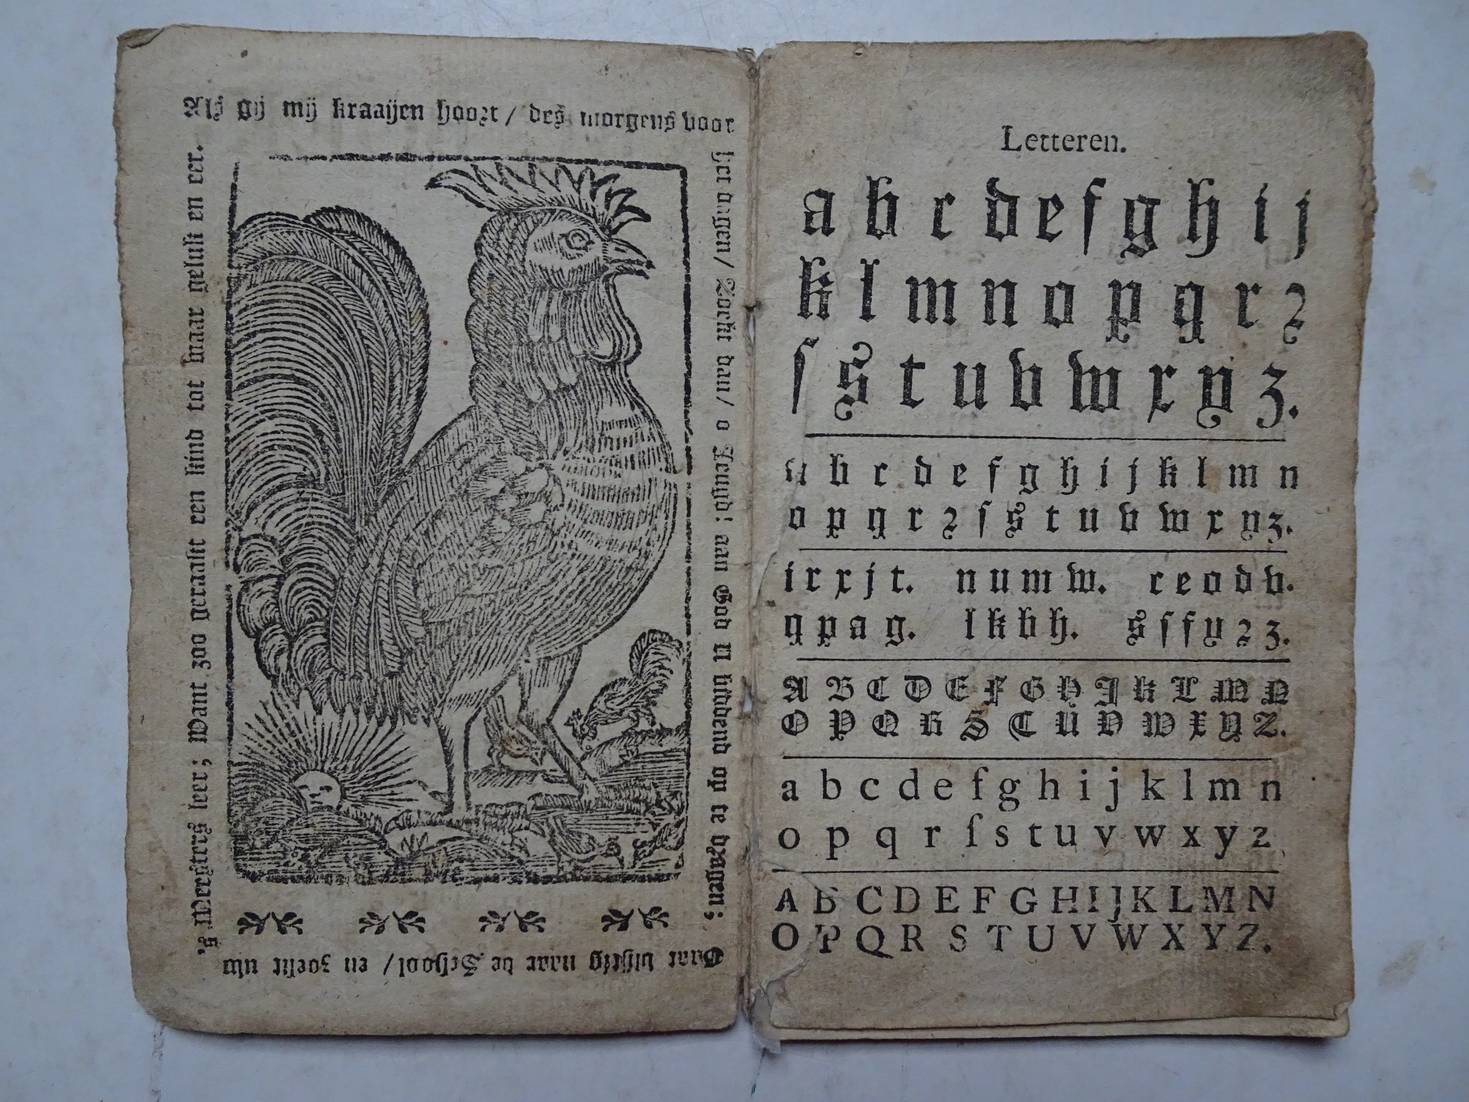 Als gij mij kraaijen hoort / des morgens voor
het dagen / Zockt dan / o Jeugd! aan God U lievdend op te dragen;
Gaat vlijtig naar de School / en zoekt uw
's Meesters leer; Want zoo geraakt een kind tot waar geluk en eer.
Letteren.
a b c d e f g h i j
k l m n o p q r ꝛ
ſ s t u v w x y z.
a b c d e f g h i j k l m n
o p q r ꝛ ſ s t u v w x y z.
i r x j t. n u m w. c e o d v.
q p a g. l k b h. s ſ f y ꝛ z.
A B C D E F G H J K L M N
O P Q R S T U V W X Y Z.
a b c d e f g h i j k l m n
o p q r ſ s t u v w x y z
A B C D E F G H I J K L M N
O P Q R S T U V W X Y Z.